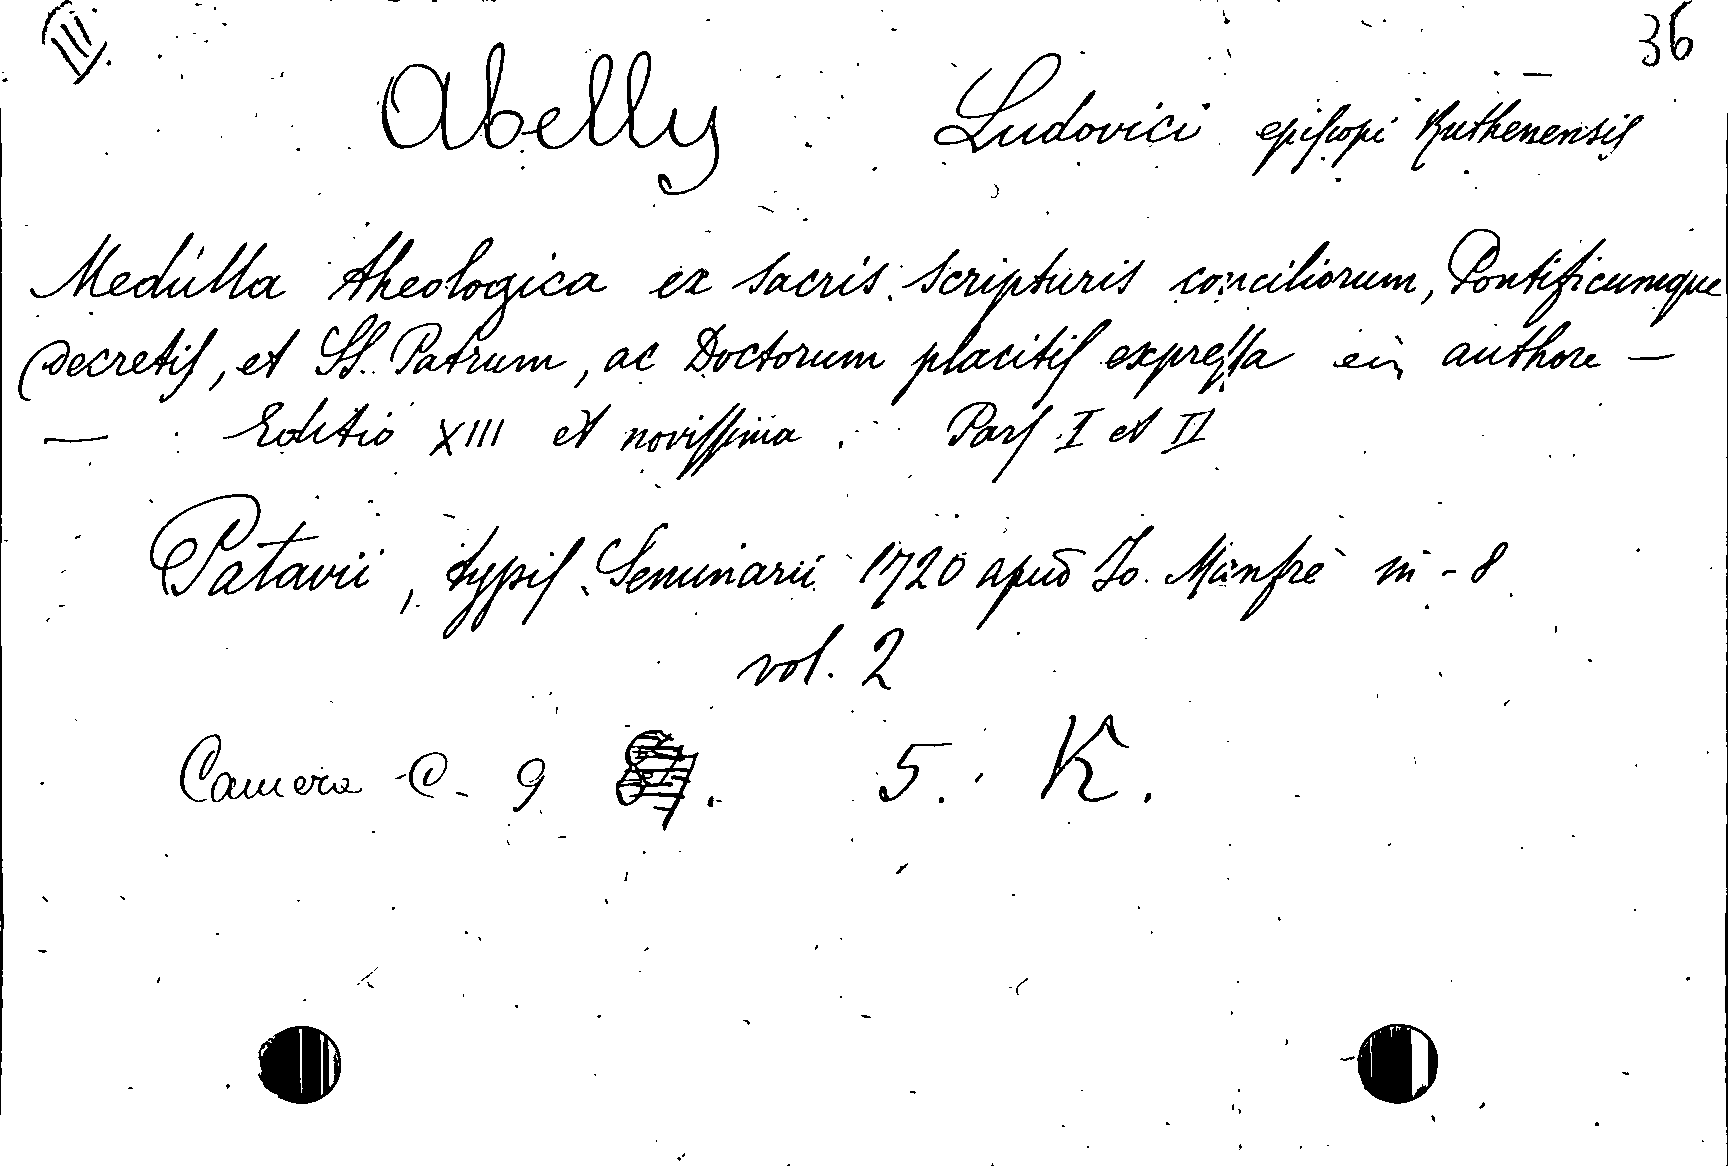 III. 36
Abelly Ludovici episcopi Ruthenensis
Medulla theologica ex sacris scripturis conciliorum, Pontificumque
decretis, et SS. Patrum, ac Doctorum placitis expressa authore —
— Editio XIII et novissima. Pars I et II
Patavii, typis Seminarii 1720 apud Jo. Manfrè in-8
vol. 2
Camera C. 9 5. K.